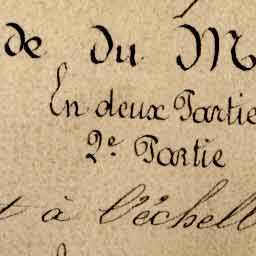 de du M
En deux Partie
2e Partie
t à l'échell